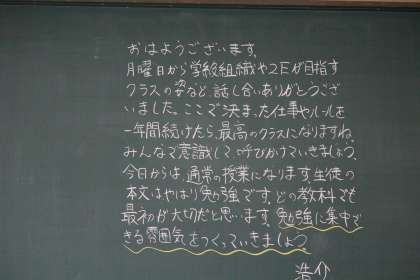 おはようございます。
月曜日から学級組織や2Eが目指す
クラスの姿など、話し合いありがとうござ
いました。ここで決まった仕事やルールを
一年間続けたら、最高のクラスになりますね。
みんなで意識して、呼びかけていきましょう。
今日からは、通常の授業になります。生徒の
本文はやはり勉強です。どの教科でも
最初が大切だと思います。勉強に集中で
きる雰囲気をつくっていきましょう。
浩介